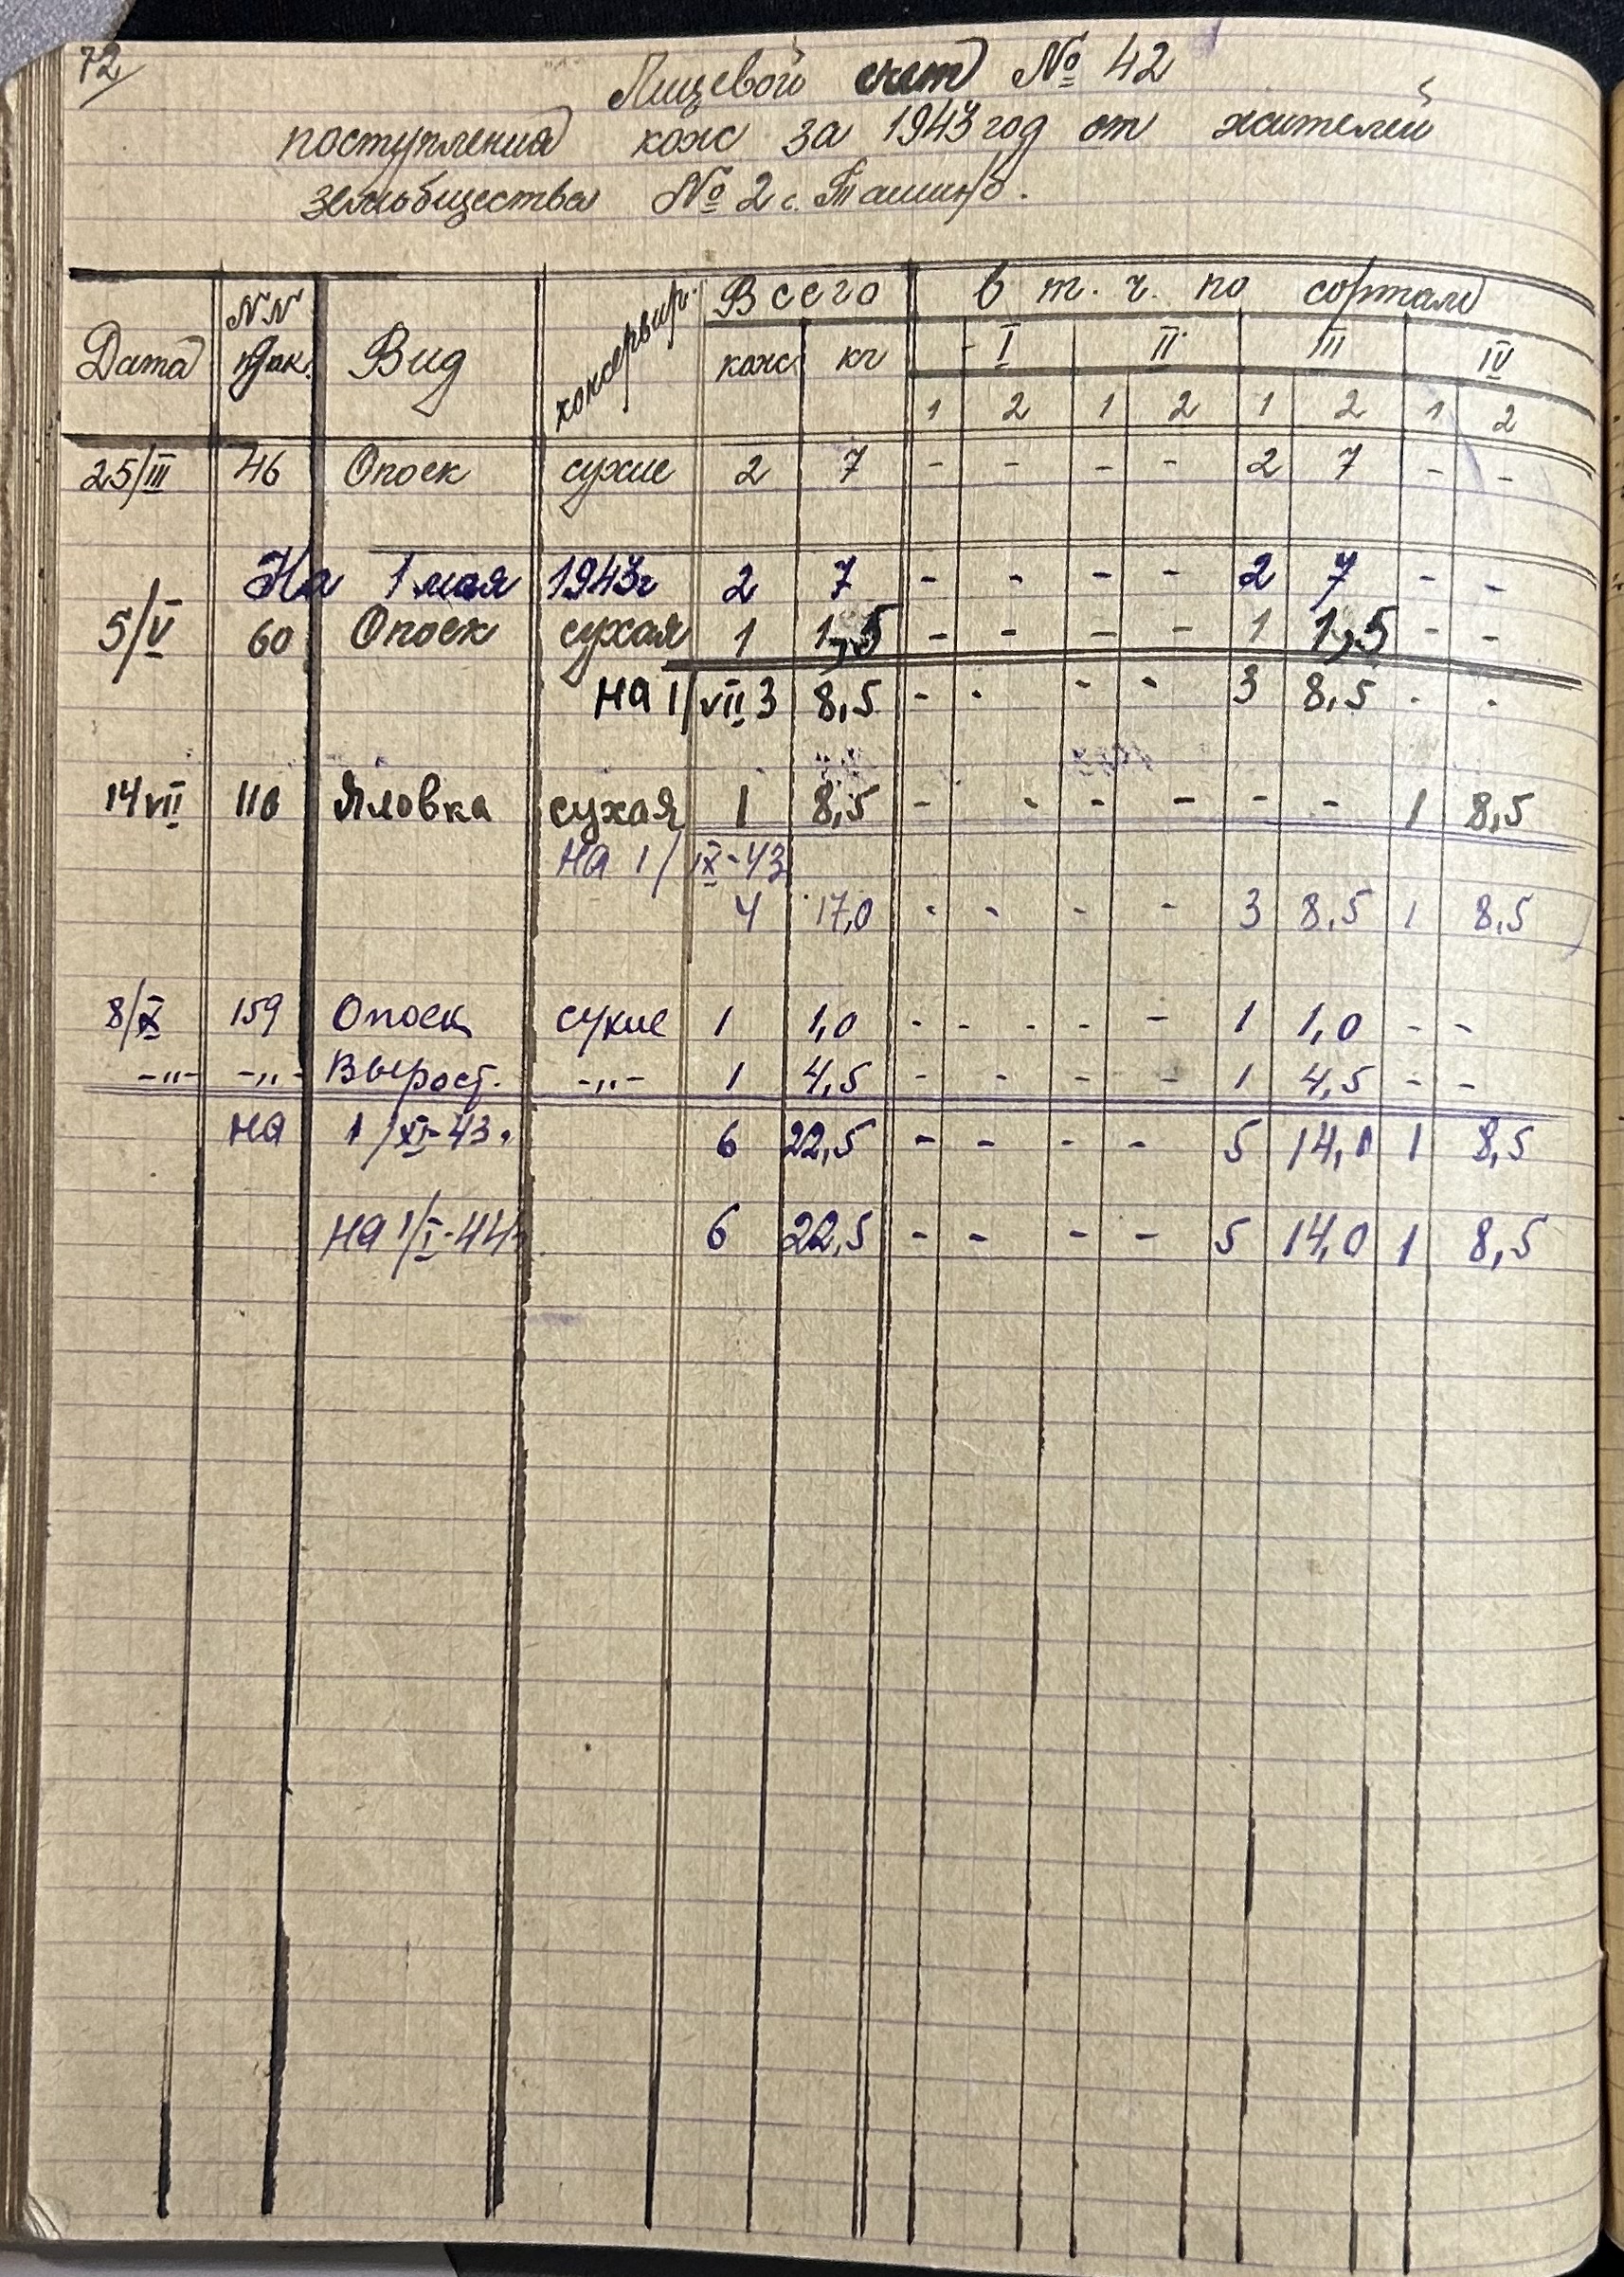 72
Лицевой счет № 42
поступления кож за 1943 год от жителей
земобщества № 2 с. Ташино.
Дата NN док. Вид консервир. Всего в т. ч. по сортам
кож кг I II III IV
1 2 1 2 1 2 1 2
25/III 46 Опоек сухие 2 7 - - - - 2 7 - -
На 1 мая 1943г 2 7 - - - - 2 7 - -
5/V 60 Опоек сухая 1 1,5 - - - - 1 1,5 - -
на 1/VII 3 8,5 - - - - 3 8,5 - -
14 VII 110 Яловка сухая 1 8,5 - - - - - - 1 8,5
на 1/IX-43
4 17,0 - - - - 3 8,5 1 8,5
8/X 159 Опоек сухие 1 1,0 - - - - 1 1,0 - -
-"- -"- Вырост. -"- 1 4,5 - - - - 1 4,5 - -
на 1/XI-43. 6 22,5 - - - - 5 14,0 1 8,5
на 1/I-44г 6 22,5 - - - - 5 14,0 1 8,5